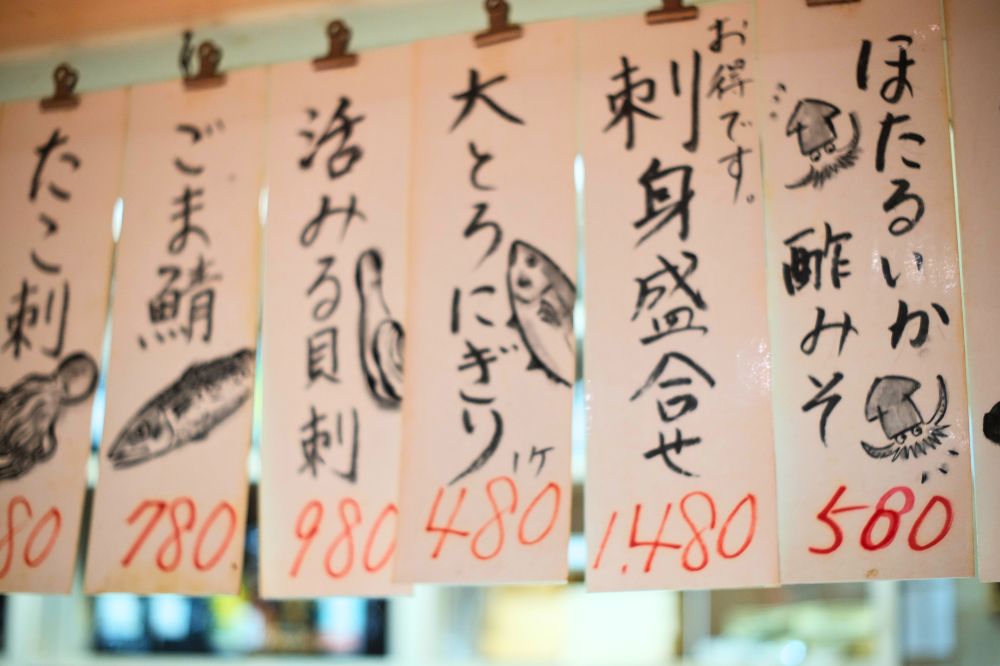 ほたるいか
酢みそ
580
お得です。
刺身盛合せ
1.480
大とろにぎり
1ケ
480
活みる貝刺
980
ごま鯖
780
たこ刺
80